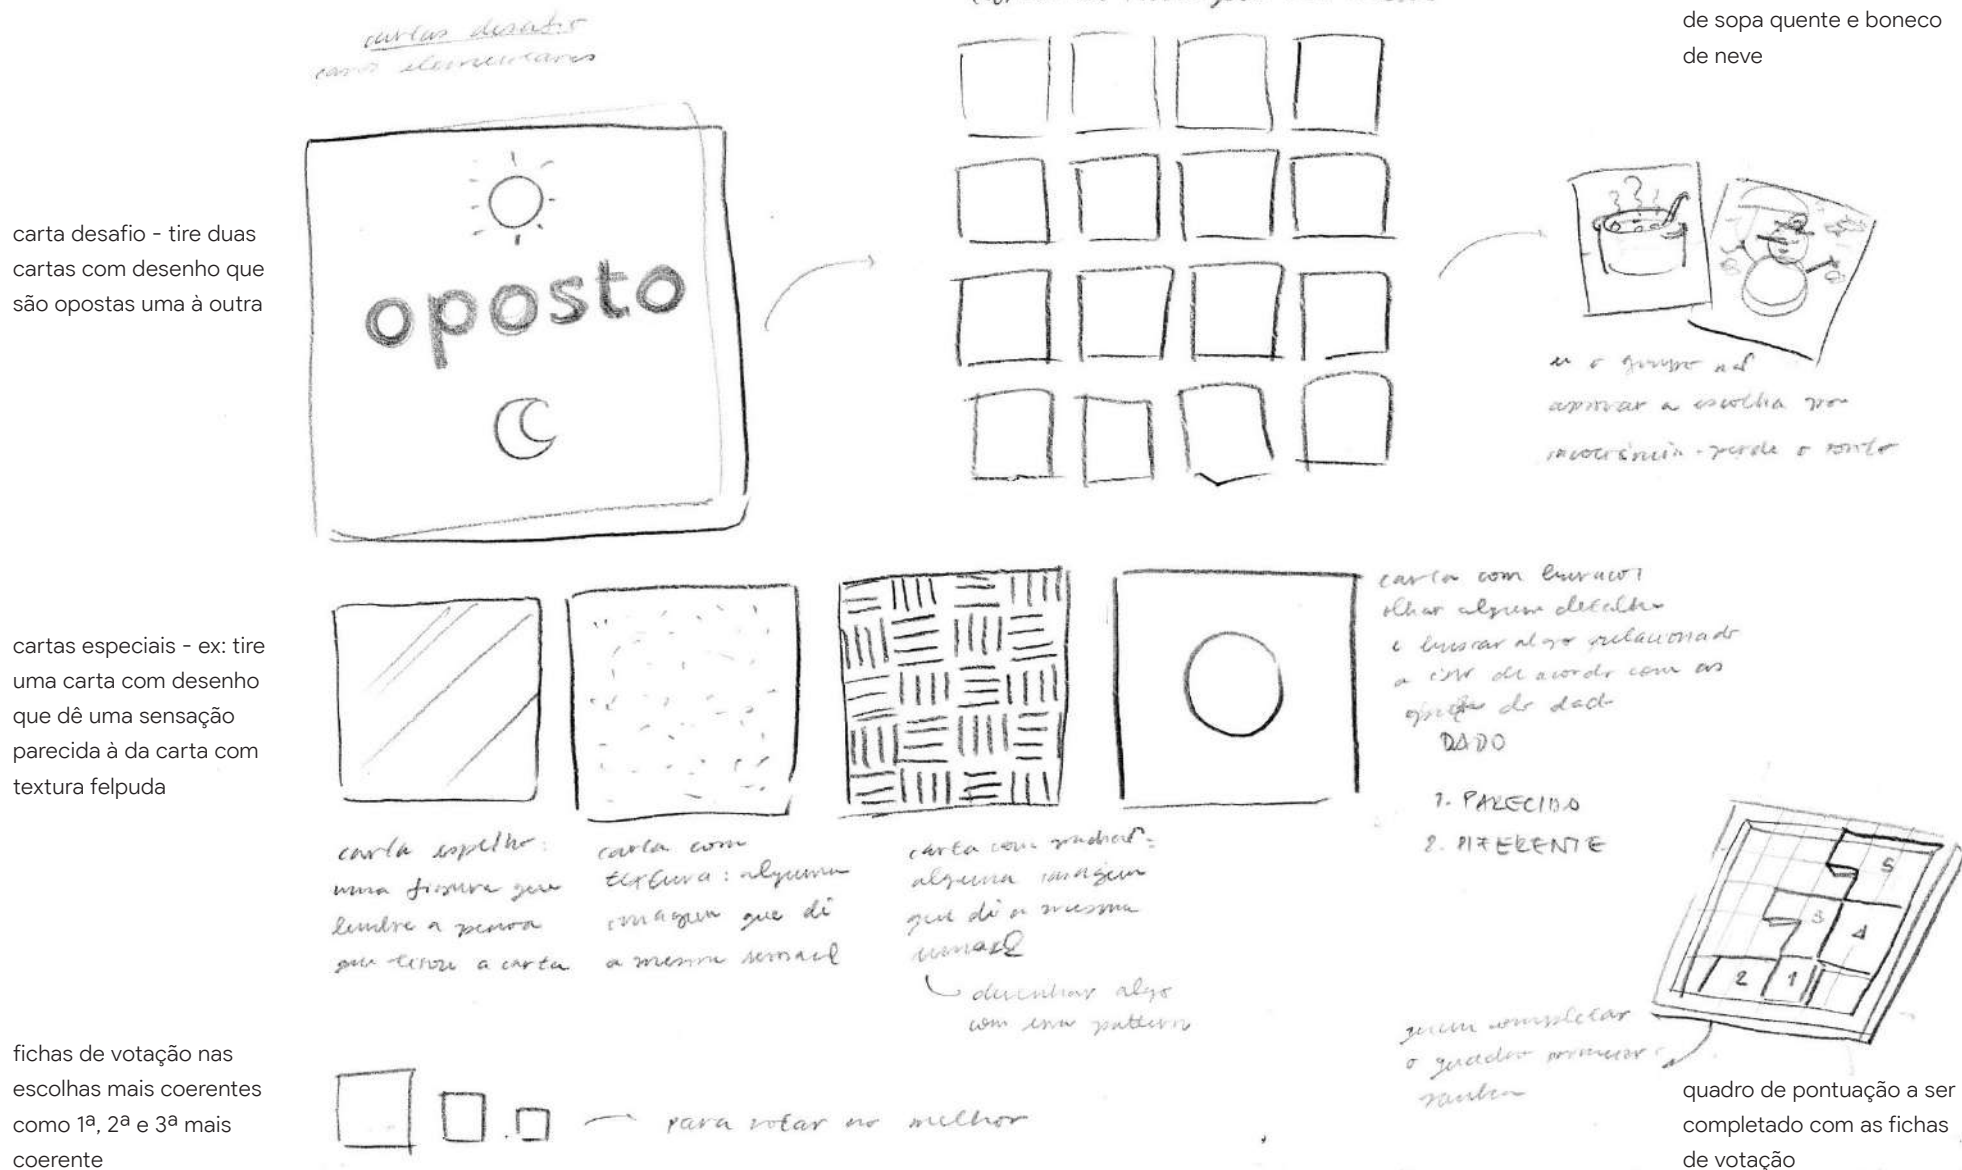 cartas desafio
casos elementares
de sopa quente e boneco
de neve
carta desafio - tire duas
cartas com desenho que
são opostas uma à outra
oposto
se o grupo não
aprovar a escolha por
incoerência - perde o ponto
cartas especiais - ex: tire
uma carta com desenho
que dê uma sensação
parecida à da carta com
textura felpuda
carta espelho:
uma figura que
lembre a pessoa
que tirou a carta
carta com
textura: alguma
imagem que dê
a mesma
carta com
alguma imagem
que dê a mesma
desenhar algo
com esse pattern
carta com buraco:
olhar algum detalhe
e buscar algo relacionado
a isso de acordo com as
do dado
DADO
1. PARECIDO
2. DIFERENTE
5
3
4
2
1
quem completar
o quadro primeiro
ganha
fichas de votação nas
escolhas mais coerentes
como 1ª, 2ª e 3ª mais
coerente
para votar no melhor
quadro de pontuação a ser
completado com as fichas
de votação